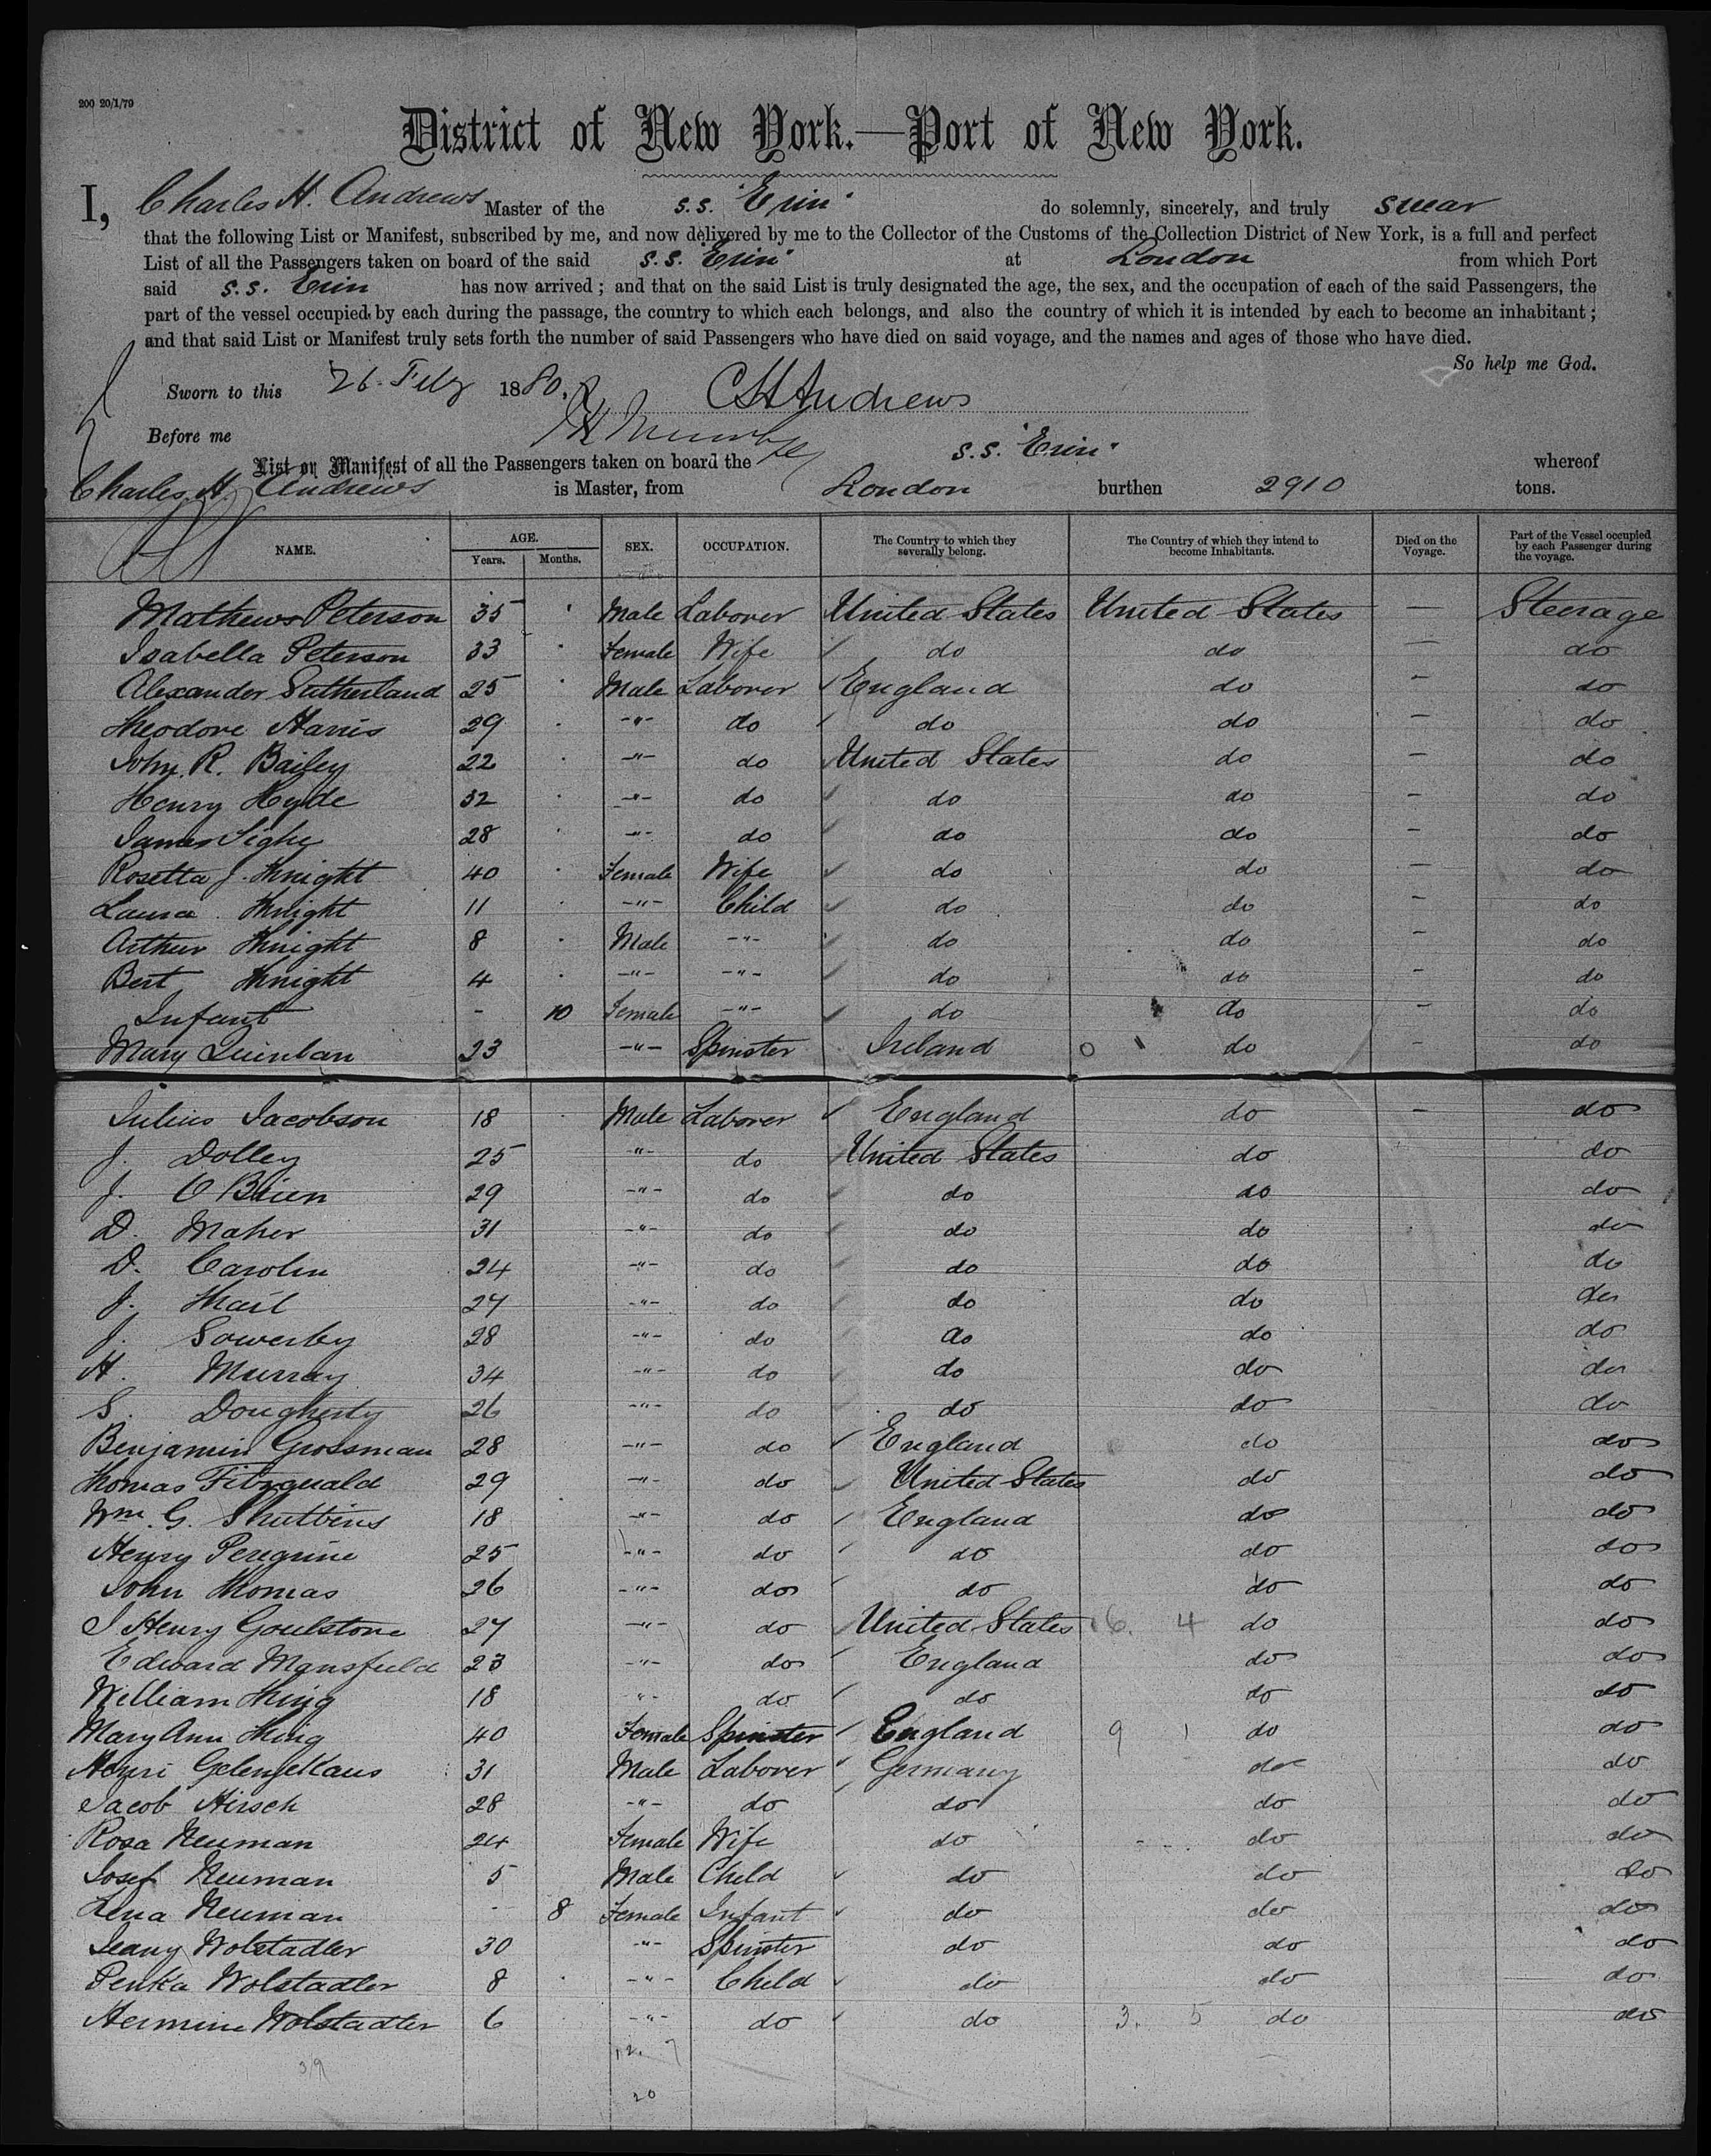 200 20/1/79
District of New York.—Port of New York.
I, Charles H. Andrews Master of the s.s. "Erin" do solemnly, sincerely, and truly swear
that the following List or Manifest, subscribed by me, and now delivered by me to the Collector of the Customs of the Collection District of New York, is a full and perfect
List of all the Passengers taken on board of the said s.s. "Erin" at London from which Port
said s.s. Erin has now arrived; and that on the said List is truly designated the age, the sex, and the occupation of each of the said Passengers, the
part of the vessel occupied by each during the passage, the country to which each belongs, and also the country of which it is intended by each to become an inhabitant;
and that said List or Manifest truly sets forth the number of said Passengers who have died on said voyage, and the names and ages of those who have died.
So help me God.
Sworn to this 26 Feby 1880, CH Andrews
Before me
List or Manifest of all the Passengers taken on board the s.s. "Erin" whereof
Charles H. Andrews is Master, from London burthen 2910 tons.
NAME. AGE. Years. Months. SEX. OCCUPATION. The Country to which they severally belong. The Country of which they intend to become Inhabitants. Died on the Voyage. Part of the Vessel occupied by each Passenger during the voyage.
Mathews Peterson 35 Male Laborer United States United States — Steerage
Isabella Peterson 33 Female Wife do do — do
Alexander Sutherland 25 Male Laborer England do — do
Theodore Harris 29 -"- do do do — do
John R. Bailey 22 -"- do United States do — do
Henry Hyde 32 -"- do do do — do
James 28 -"- do do do — do
Rosetta J. Knight 40 Female Wife do do — do
Laura Knight 11 -"- Child do do — do
Arthur Knight 8 Male -"- do do — do
Bert Knight 4 -"- -"- do do — do
Infant - 10 Female -"- do do — do
Mary Quinlan 23 -"- Spinster Ireland do - do
Julius Jacobson 18 Male Laborer England do — do
J. Dolley 25 -"- do United States do do
J. O'Brien 29 -"- do do do do
D. Maher 31 -"- do do do do
D. Carolin 24 -"- do do do do
J. 27 -"- do do do do
J. Sowerby 28 -"- do do do do
H. Murray 34 -"- do do do do
S. Dougherty 26 -"- do do do do
Benjamin Grossman 28 -"- do England do do
Thomas Fitzgerald 29 -"- do United States do do
Wm. G. 18 -"- do England do do
Henry Peregrine 25 -"- do do do do
John Thomas 26 -"- do do do do
J Henry Goulstone 27 -"- do United States 6. 4 do do
Edward Mansfield 23 -"- do England do do
William King 18 -"- do do do do
Mary Ann King 40 Female Spinster England 9 1 do do
Henri 31 Male Laborer Germany do do
Jacob Hirsch 28 -"- do do do do
Rosa Neuman 24 Female Wife do do do
Josef Neuman 5 Male Child do do do
Lena Neuman - 8 Female Infant do do do
Jeany Wolstadler 30 -"- Spinster do do do
Penka Wolstadler 8 -"- Child do do do
Hermine Wolstadler 6 -"- do do 3. 5 do do
12. 7
39
20